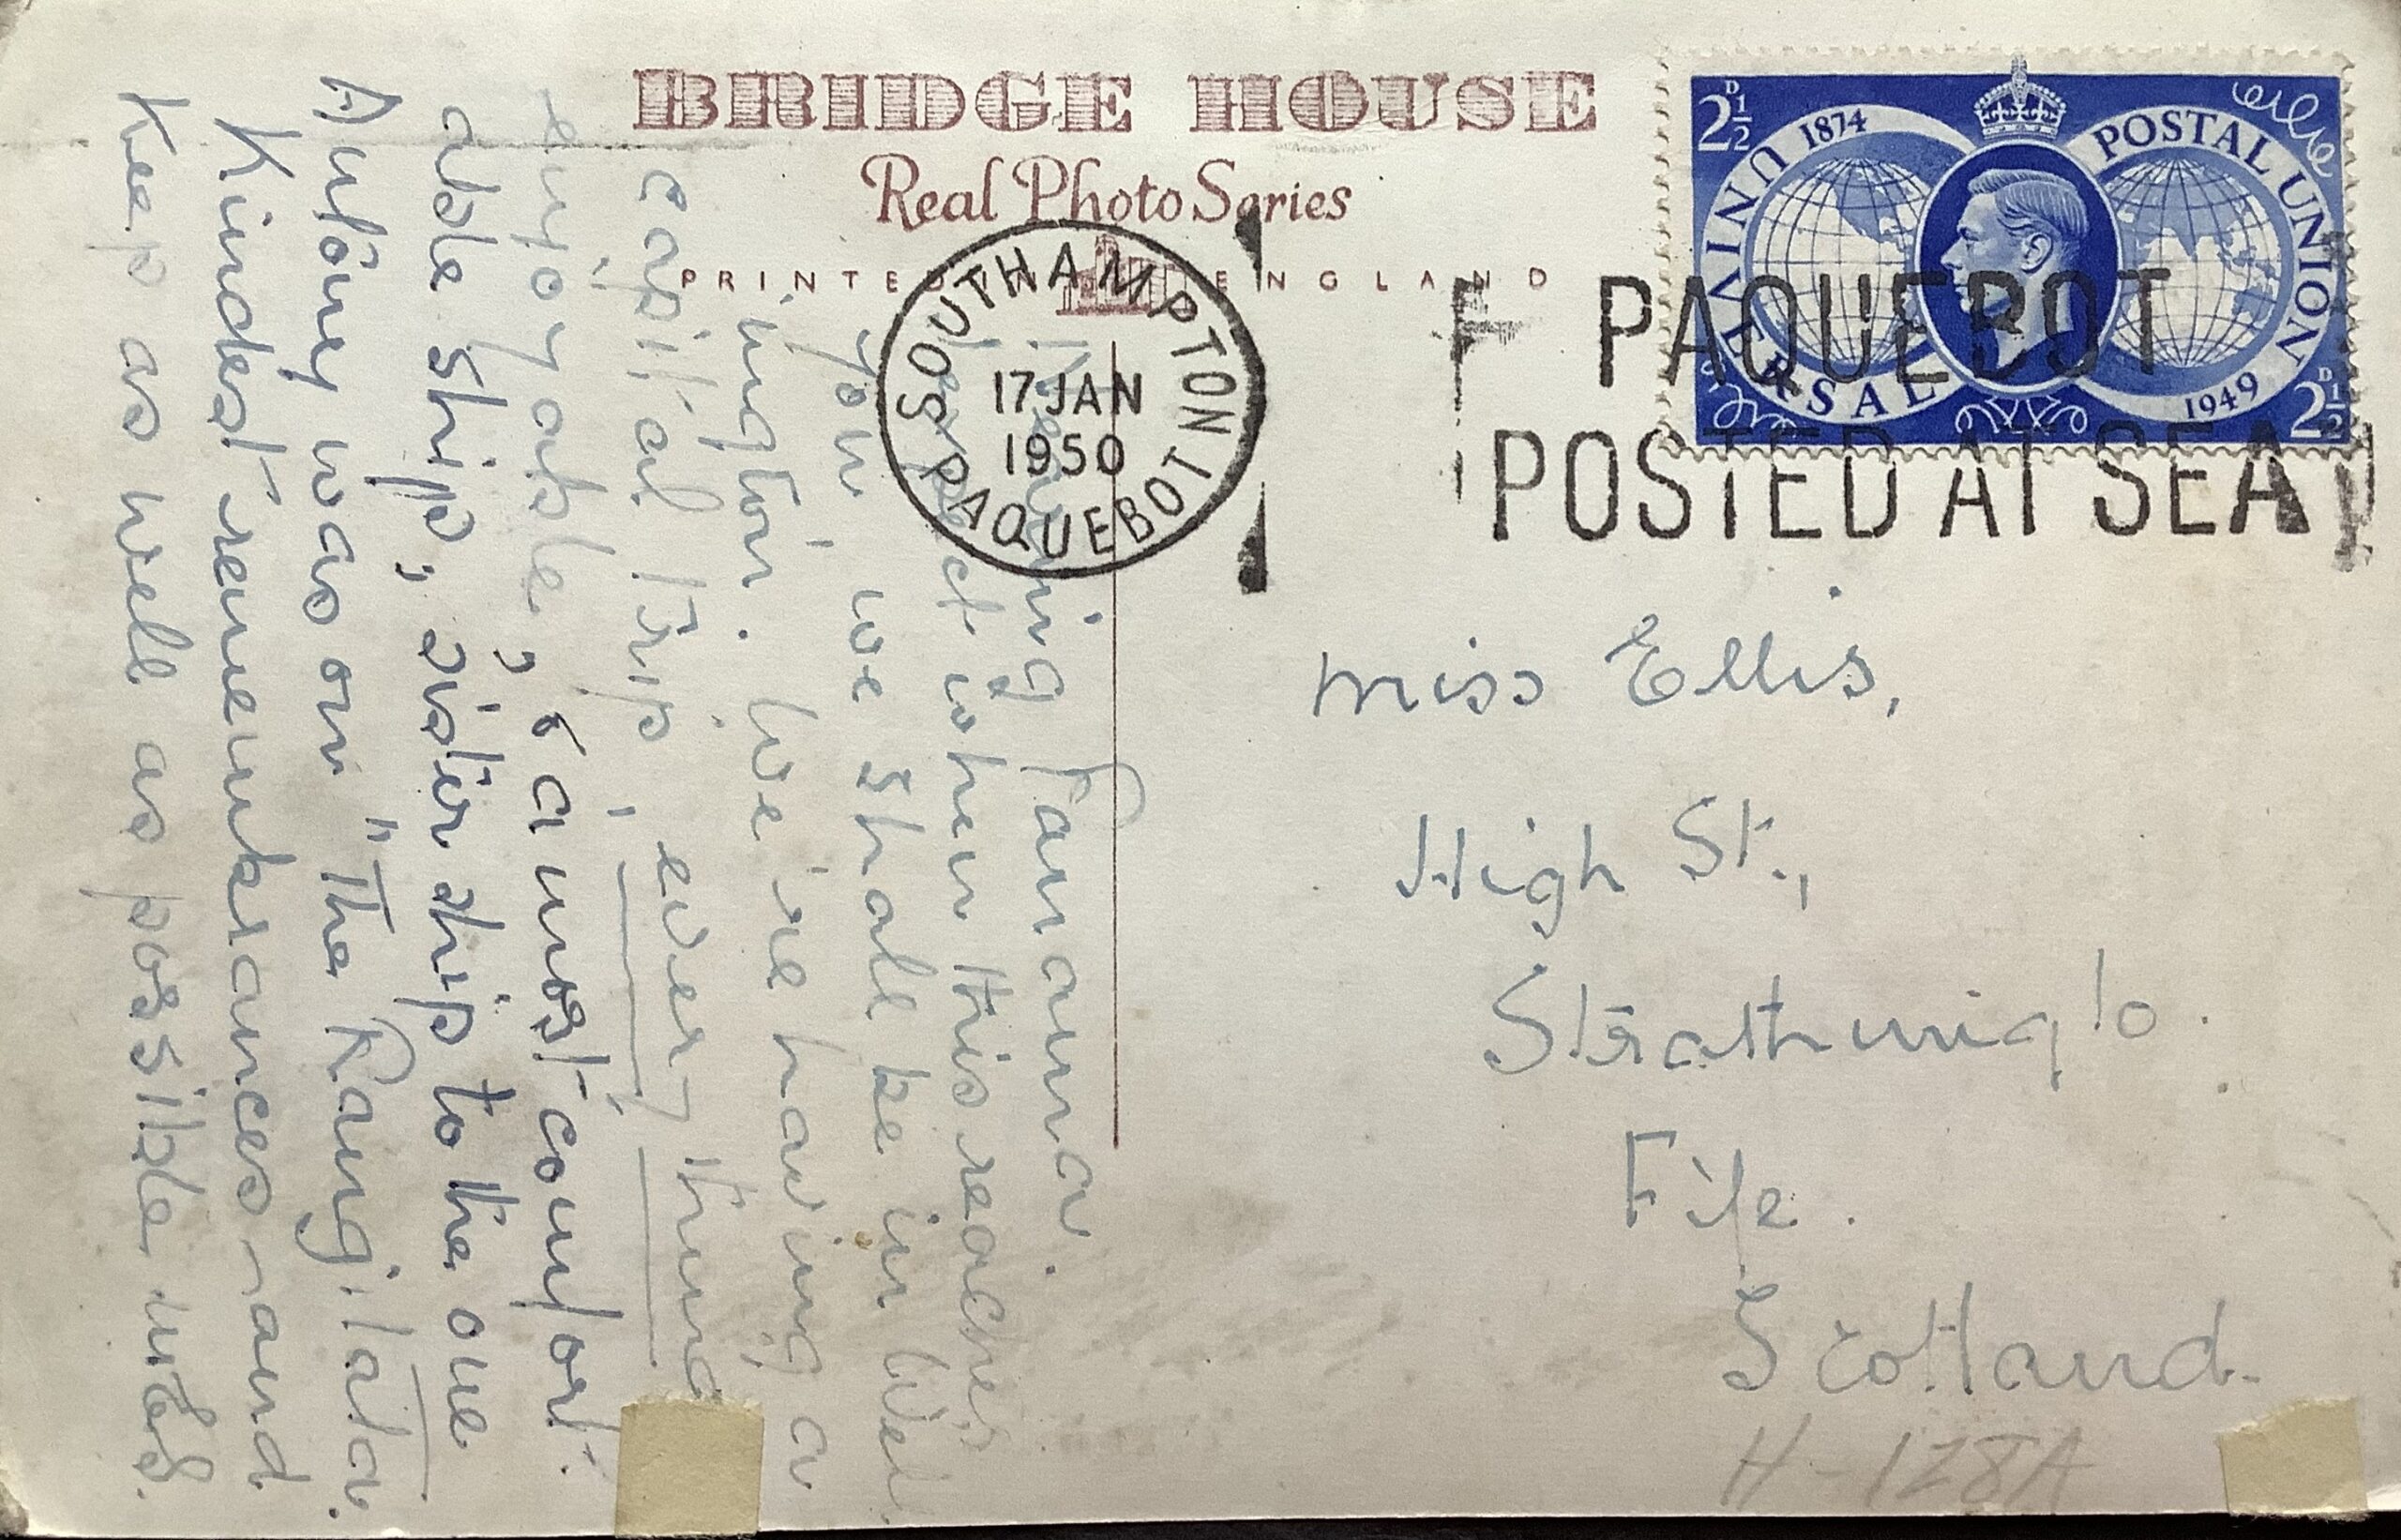 BRIDGE HOUSE
Real Photo Series
PRINTED IN ENGLAND
2½D
UNIVERSAL POSTAL UNION
1874
1949
2½D
SOUTHAMPTON
17 JAN
1950
PAQUEBOT
PAQUEBOT
POSTED AT SEA
Nearing Panama.
I expect when this reaches
you, we shall be in Wel-
lington. We're having a
capital trip, every thing
enjoyable, & a most comfort-
able ship, sister ship to the one
Antony was on "The Rangitata.
Kindest remembrances, and
Keep as well as possible.
Miss Ellis,
High St.,
Strathmiglo.
Fife.
Scotland.
H-128A